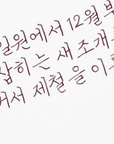 일원에서 12월부
잡히는 새조개
서 제철을 이